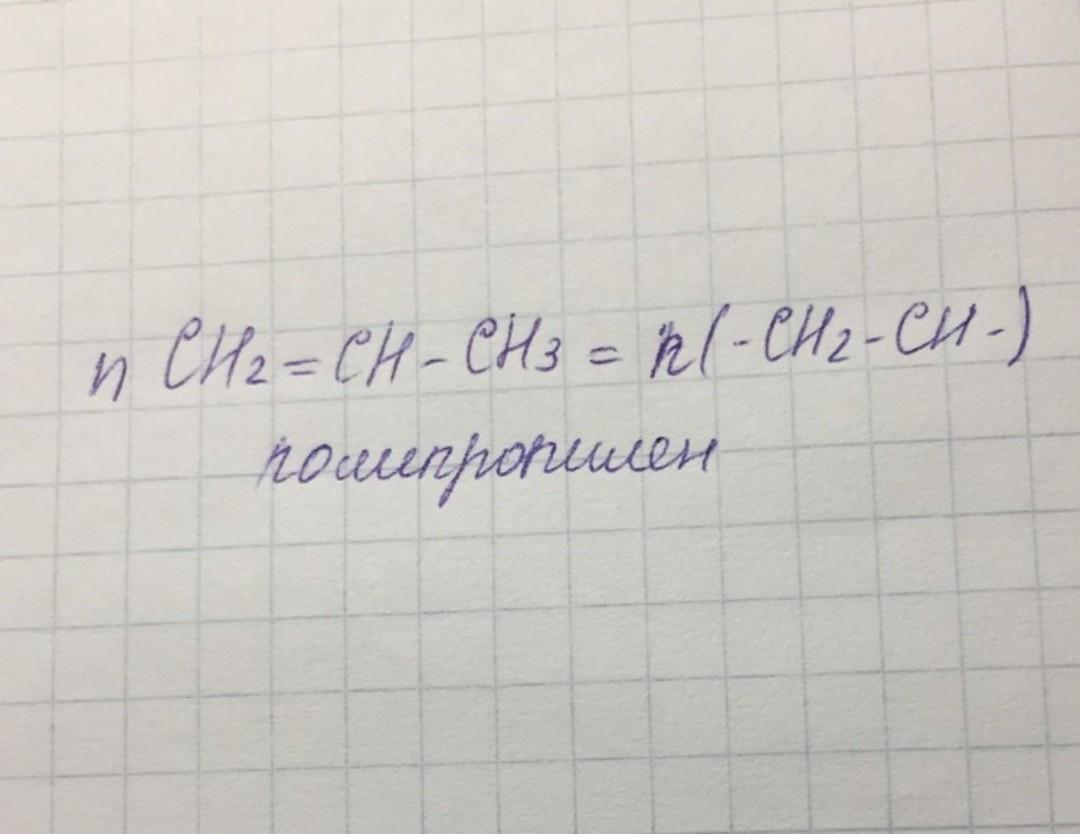 n CH2=CH-CH3 = n(-CH2-CH-)
полипропилен